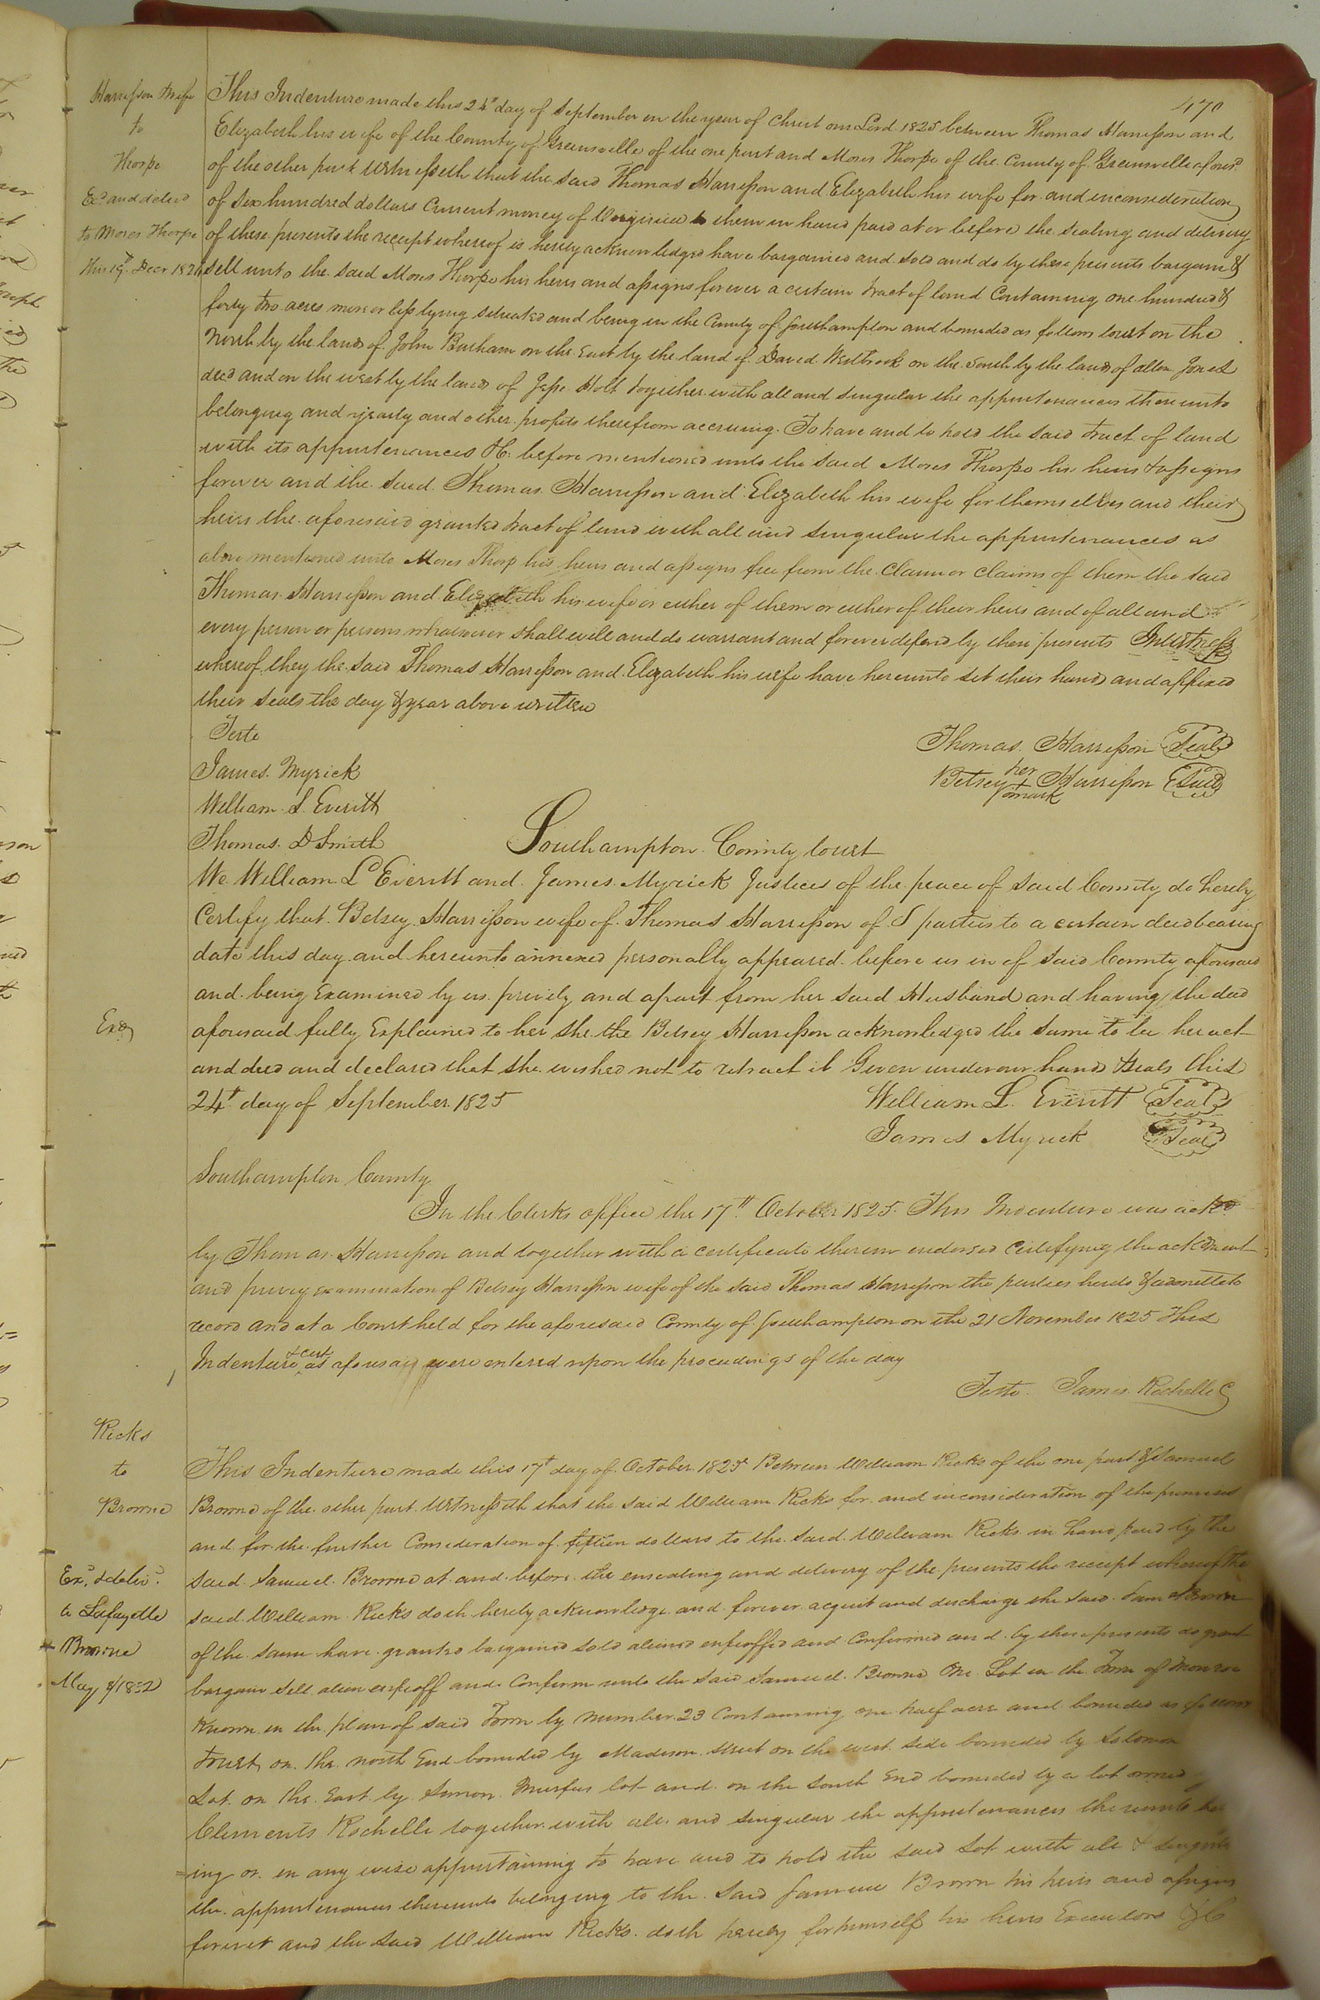 470
Harrisson & wife
to
Thorpe
Ex.d and deld
to Moses Thorpe
this 19th Decr 1826
This Indenture made this 24th day of September in the year of Christ our Lord 1825 between Thomas Harrisson and
Elizabeth his wife of the County of Greensville of the one part and Moses Thorpe of the County of Greensville aforesd
of the other part Witnesseth that the said Thomas Harrisson and Elizabeth his wife for and inconsideration
of Six hundred dollars Current money of Virginia to them in hand paid at or before the sealing and delivery
of these presents the receipt whereof is hereby acknowledged have bargained and sold and do by these presents bargain &
sell unto the said Moses Thorpe his heirs and assigns forever a certain tract of land Containing one hundred &
forty two acres more or less lying situated and being in the County of Southampton and bounded as follows towit on the
North by the lands of John Barham on the East by the land of David Westbrook on the South by the lands of Jones
decd and on the west by the lands of Jesse Holt together with all and singular the appurtenances thereunto
belonging and yearly and other profits therefrom accruing. To have and to hold the said tract of land
with its appurtenances &c before mentioned unto the said Moses Thorpe his heirs & assigns
forever and the said Thomas Harrisson and Elizabeth his wife for themselves and their
heirs the aforesaid granted tract of land with all and singular the appurtenances as
above mentioned unto Moses Thorp his heirs and assigns free from the Claim or claims of them the said
Thomas Harrisson and Elizabeth his wife or either of them or either of their heirs and of all and
every person or persons whatsoever shall will and do warrant and forever defend by these presents In witness
whereof they the said Thomas Harrisson and Elizabeth his wife have hereunto set their hands and affixed
their seals the day & year above written
Teste
Thomas Harrisson Seal
James Myrick
her
Betsey + Harrisson Seal
mark
William L. Everitt
Thomas D Smith
Southampton County Court
We William L Everitt and James Myrick Justices of the peace of said County do hereby
Certify that Betsey Harrisson wife of Thomas Harrisson of S parties to a certain deed bearing
date this day and hereunto annexed personally appeared before us in of said County aforesaid
and being Examined by us privily and apart from her said Husband and having the deed
Exd
aforesaid fully Explained to her she the Betsey Harrisson acknowledged the same to be her act
and deed and declared that she wished not to retract it Given under our hands & seals this
24th day of September 1825
William L. Everitt Seal
James Myrick Seal
Southampton County
In the Clerks office the 17th October 1825. This Indenture was ackd
by Thomas Harrisson and together with a certificate thereon endorsed Certifying the ackdment
and privy examination of Betsey Harrisson wife of the said Thomas Harrisson the parties hereto & admitted to
record and at a Court held for the aforesaid County of Southampton on the 21 November 1825 This
Indenture & cert as aforesaid were entered upon the proceedings of the day
Teste James Rochelle C
Ricks
to
Browne
Exd & delivd
to Lafayette
Browne
May 8/1832
This Indenture made this 17th day of October 1825 Between William Ricks of the one part & Samuel
Browne of the other part Witnesseth that the said William Ricks for and inconsideration of the premises
and for the further Consideration of fifteen dollars to the said William Ricks in hand paid by the
said Samuel Browne at and before the ensealing and delivery of the presents the receipt whereof the
said William Ricks doth hereby acknowledge and forever acquit and discharge the said Sam Brown
of the same have granted bargained sold aliened enfeoffed and Confirmed and by these presents do grant
bargain sell alien enfeoff and Confirm unto the said Samuel Browne One Lot in the Town of Monroe
Known in the plan of said Town by number 23 Containing one half acre and bounded as follows
towit on the north End bounded by Madison street on the west side bounded by Solomon
Lot on the East by Simon Murfees lot and on the South End bounded by a lot owned
Clements Rochelle together with all and singular the appurtenances thereunto be
=ing or in any wise appurtaining to have and to hold the said Lot with all & singular
the appurtenances thereunto belonging to the said Samuel Brown his heirs and assigns
forever and the said William Ricks doth hereby for himself his heirs Executors &c